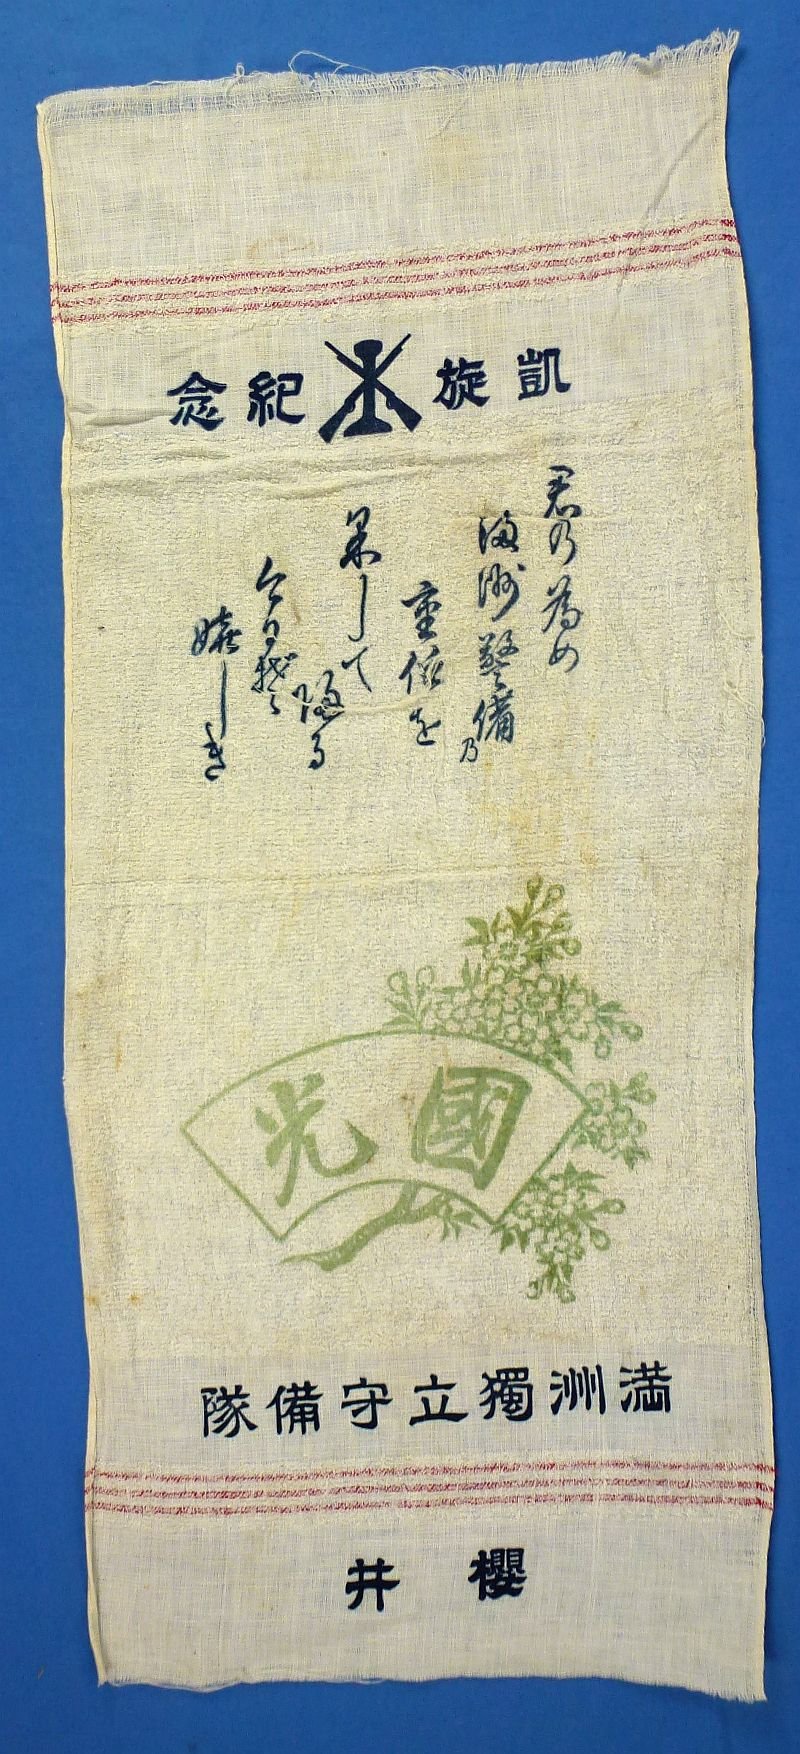 凱旋紀念
君乃為め
満洲警備乃
重役を
果して
帰る
今日ぞ
嬉しき
國光
満洲獨立守備隊
櫻井